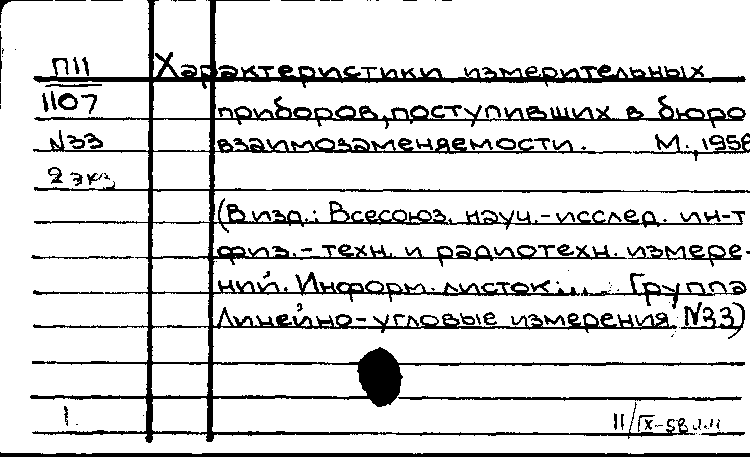 П11 Характеристики измерительных
1107 приборов, поступивших в бюро
N33 взаимозаменяемости. М., 1958
2 экз
(В изд.: Всесоюз. науч.-исслед. ин-т
физ.-техн. и радиотехн. измере-
ний. Информ. листок... Группа
Линейно-угловые измерения, N33)
1 11/IX-58